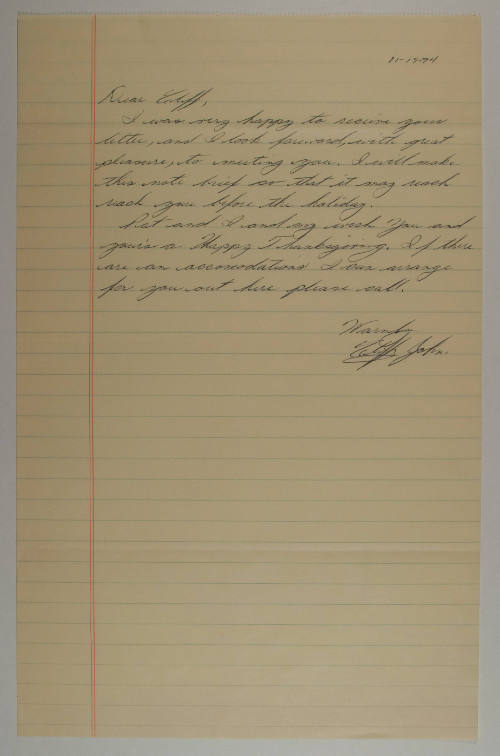 11-19-94
Dear Cliff,
I was very happy to receive your
letter, and I look forward, with great
pleasure, to meeting you. I will make
this note brief so that it may reach
reach you before the holiday.
Pat and I and my wish You and
yours a Happy Thanksgiving. If there
are an accomodations I can arrange
for you out here please call.
Warmly
John.